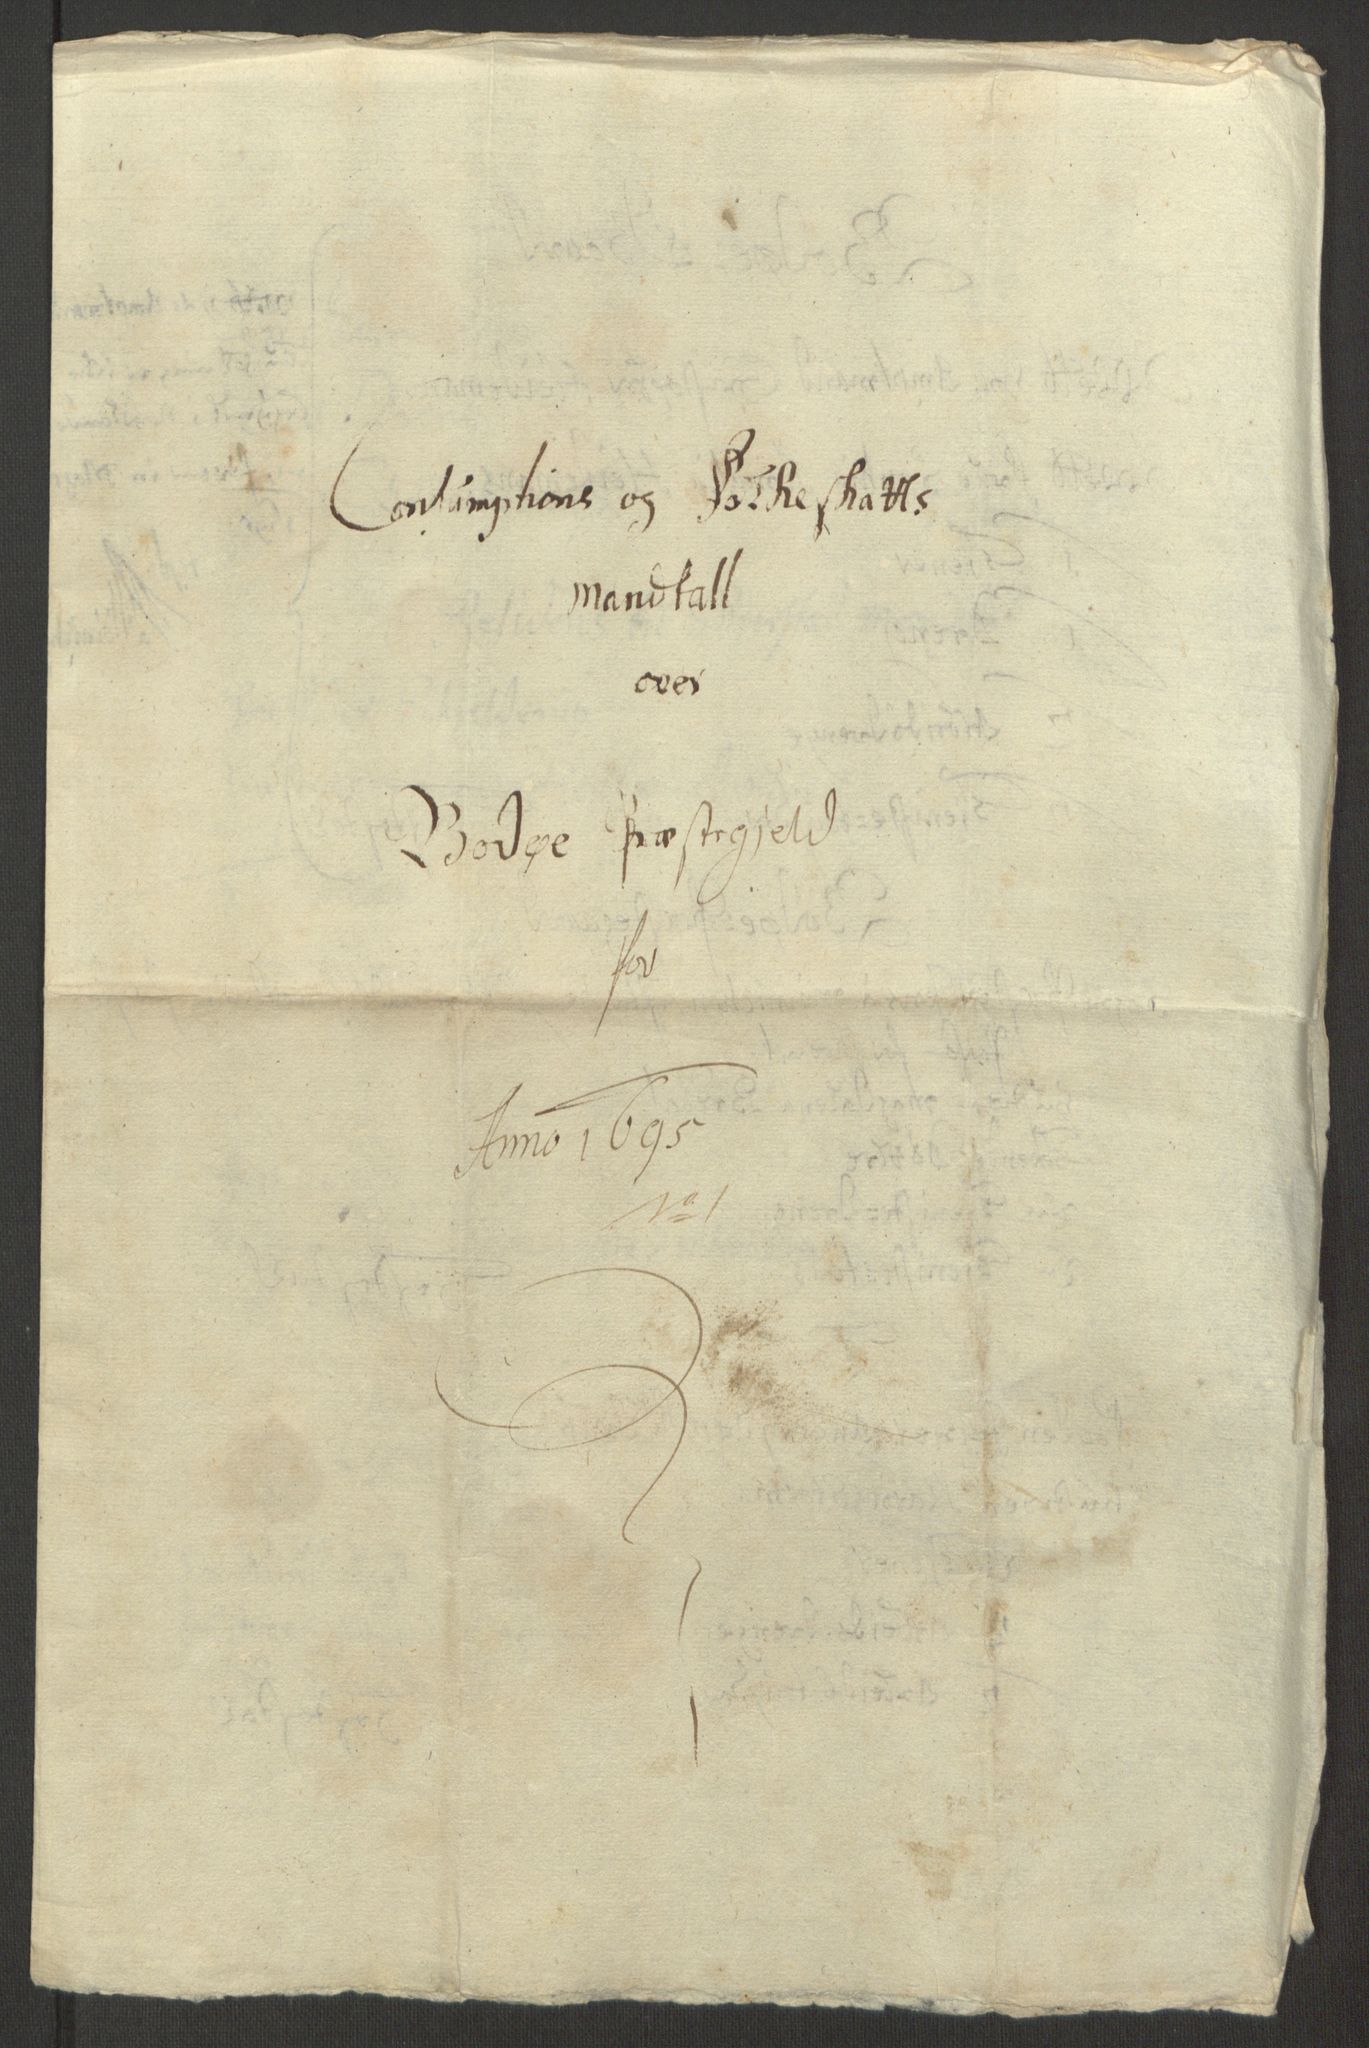 Consumptions og Folke skatts
mandtall
over
Bodøe Præstegield
for
Anno 1695
No 1